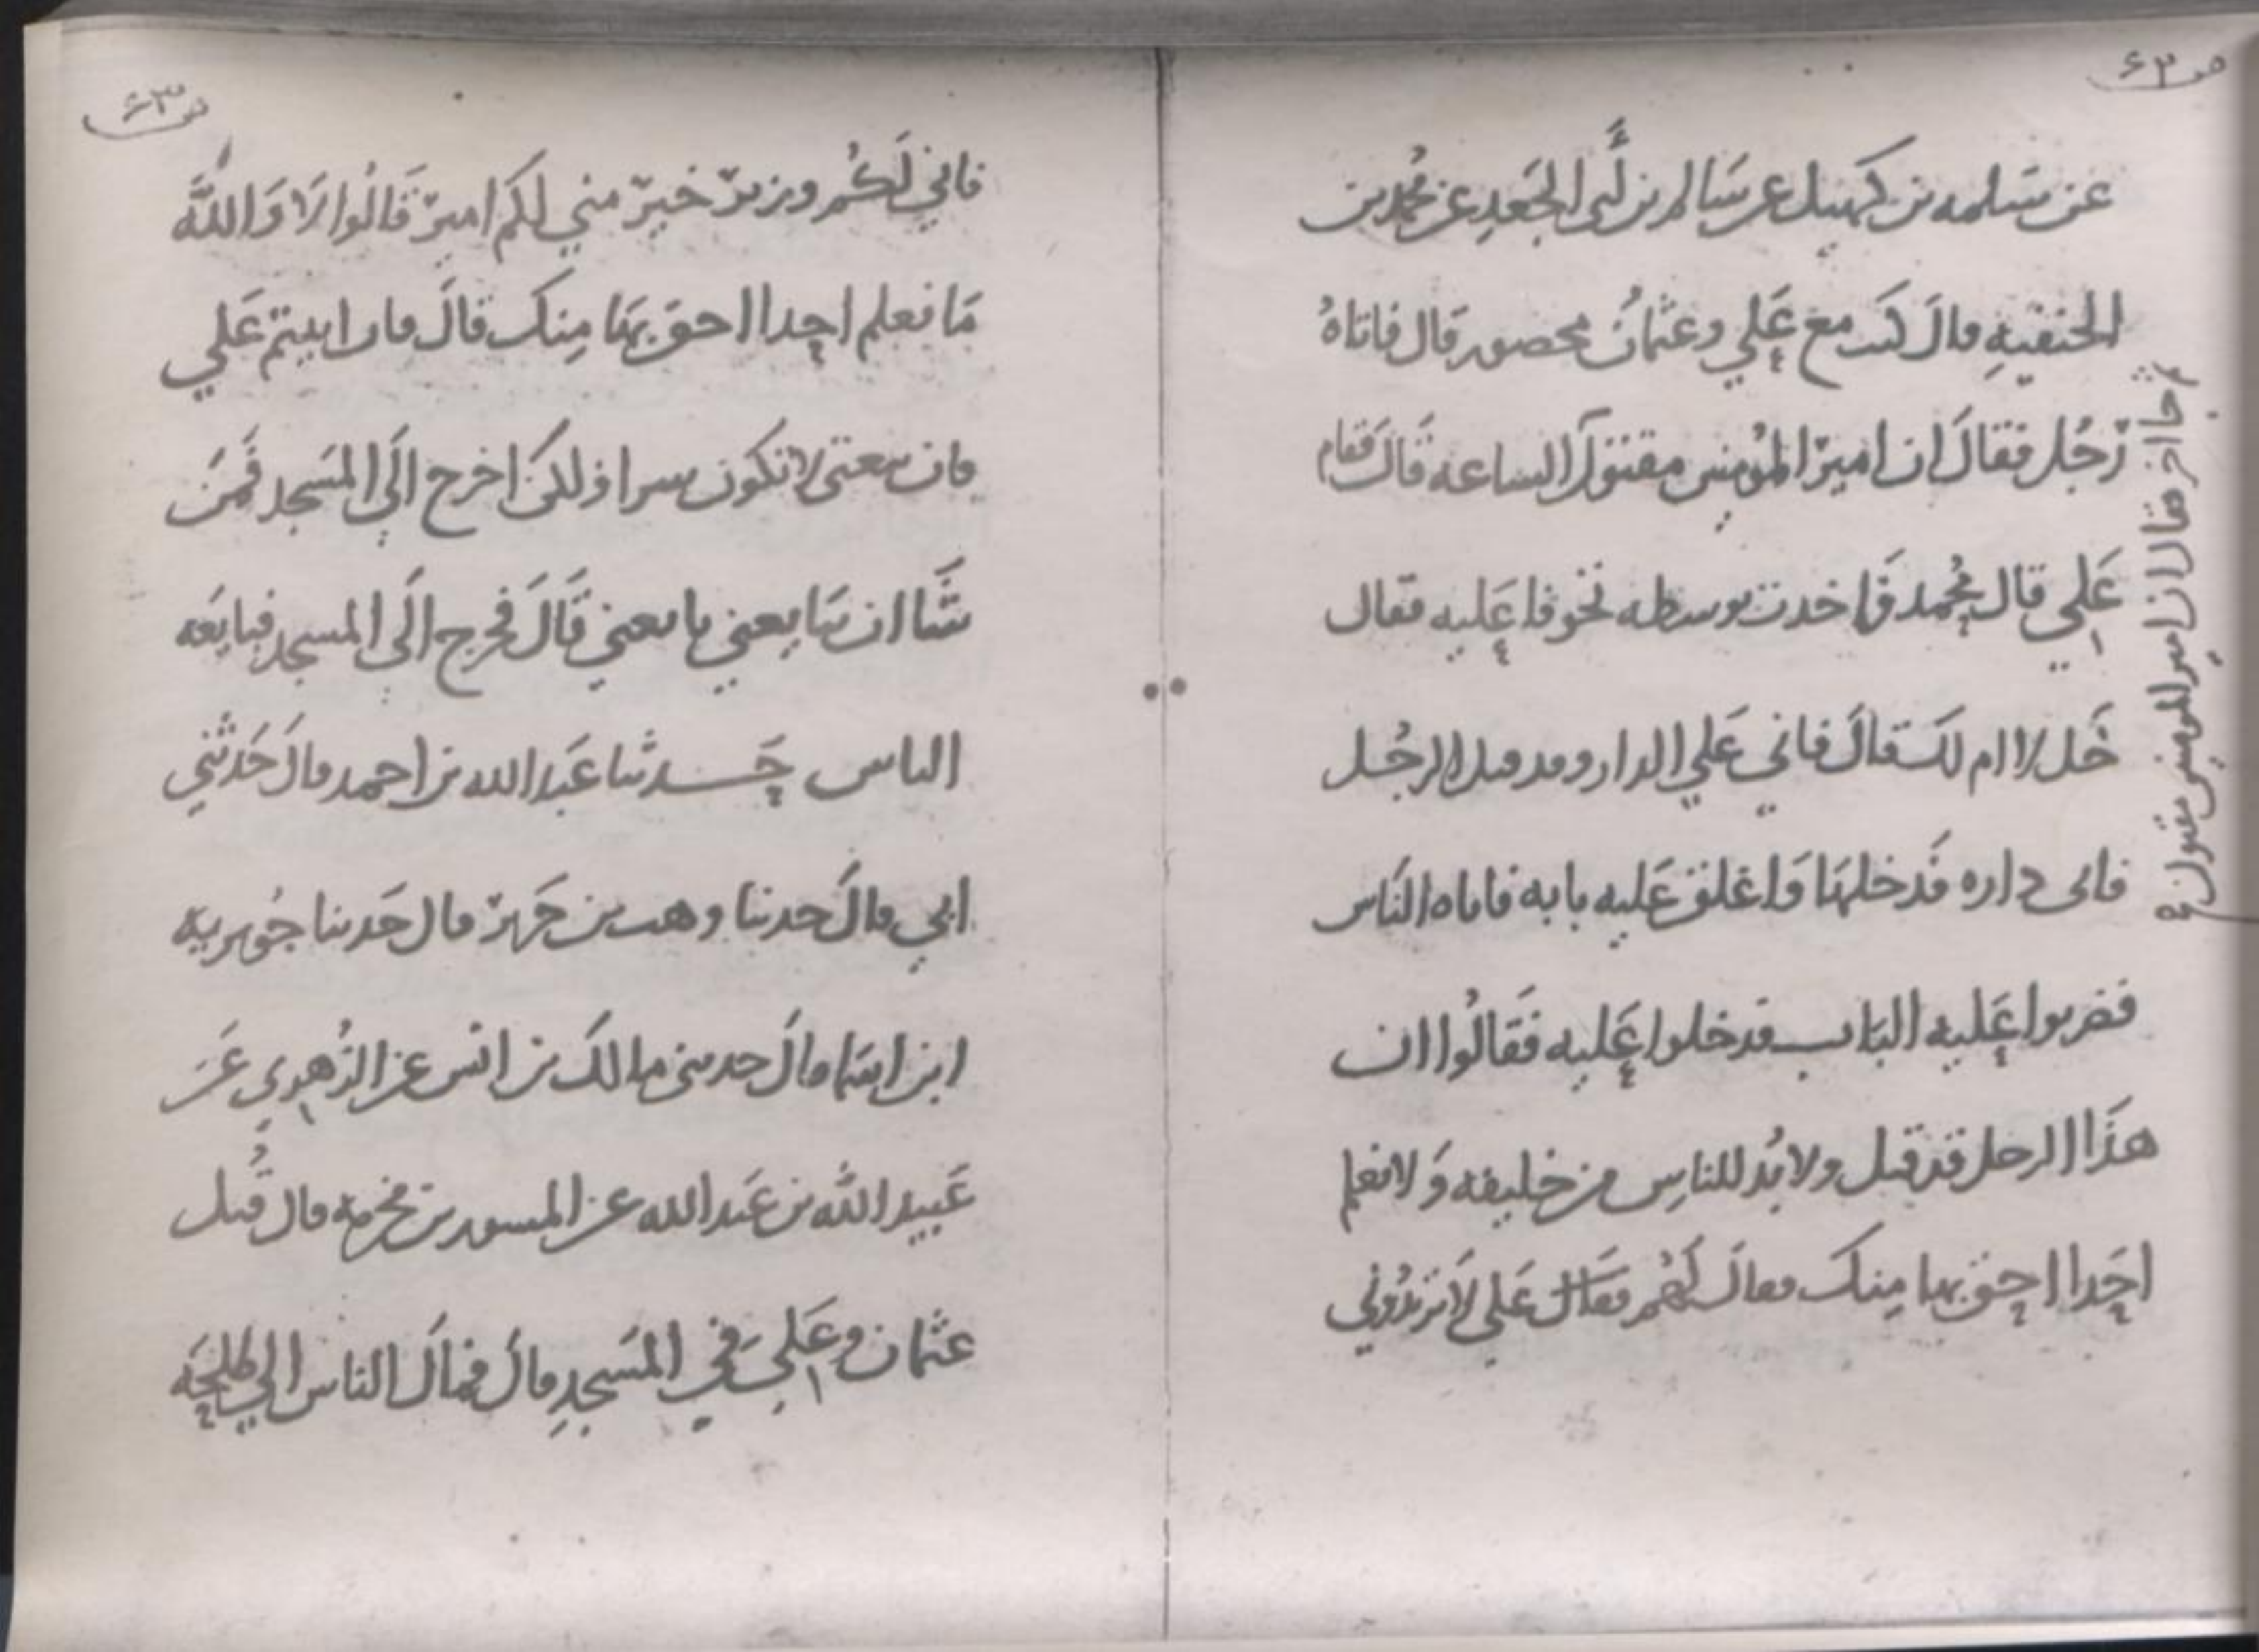 ص ٦٣
عن سلمه بن كهيل عن سالم بن أبي الجعد عن محمد بن
الحنفيه قال كنت مع علي وعثمان محصور قال فاتاه
رجل فقال ان امير المؤمنين مقتول الساعه قال فقام
علي قال محمد فاخذت بوسطه تخوفا عليه فقال
خل لا ام لك قال فاتى علي الدار وقد قتل الرجل
فاتى داره فدخلها واغلق عليه بابه فاتاه الناس
فضربوا عليه الباب فدخلوا عليه فقالوا ان
هذا الرجل قد قتل ولا بد للناس من خليفه ولا نعلم
احدا احق بها منك فقال لهم فقال علي لا تريدوني
ثم جا اخر فقال ان امير المومنين مقتول
ص ٦٣
فاني لكم وزير خير مني لكم امير قالوا لا والله
ما نعلم احدا احق بها منك قال فان ابيتم علي
فان بيعتي لا تكون سرا ولكن اخرج الي المسجد فمن
شا ان يبايعني بايعني قال فخرج الي المسجد فبايعه
الناس حدثنا عبد الله بن احمد قال حدثني
ابي قال حدثنا وهب بن جرير قال حدثنا جويريه
ابن اسما قال حدثني مالك بن انس عن الزهري عن
عبيد الله بن عبد الله عن المسور بن مخرمه قال قتل
عثمان وعلي في المسجد قال فمال الناس الي طلحه